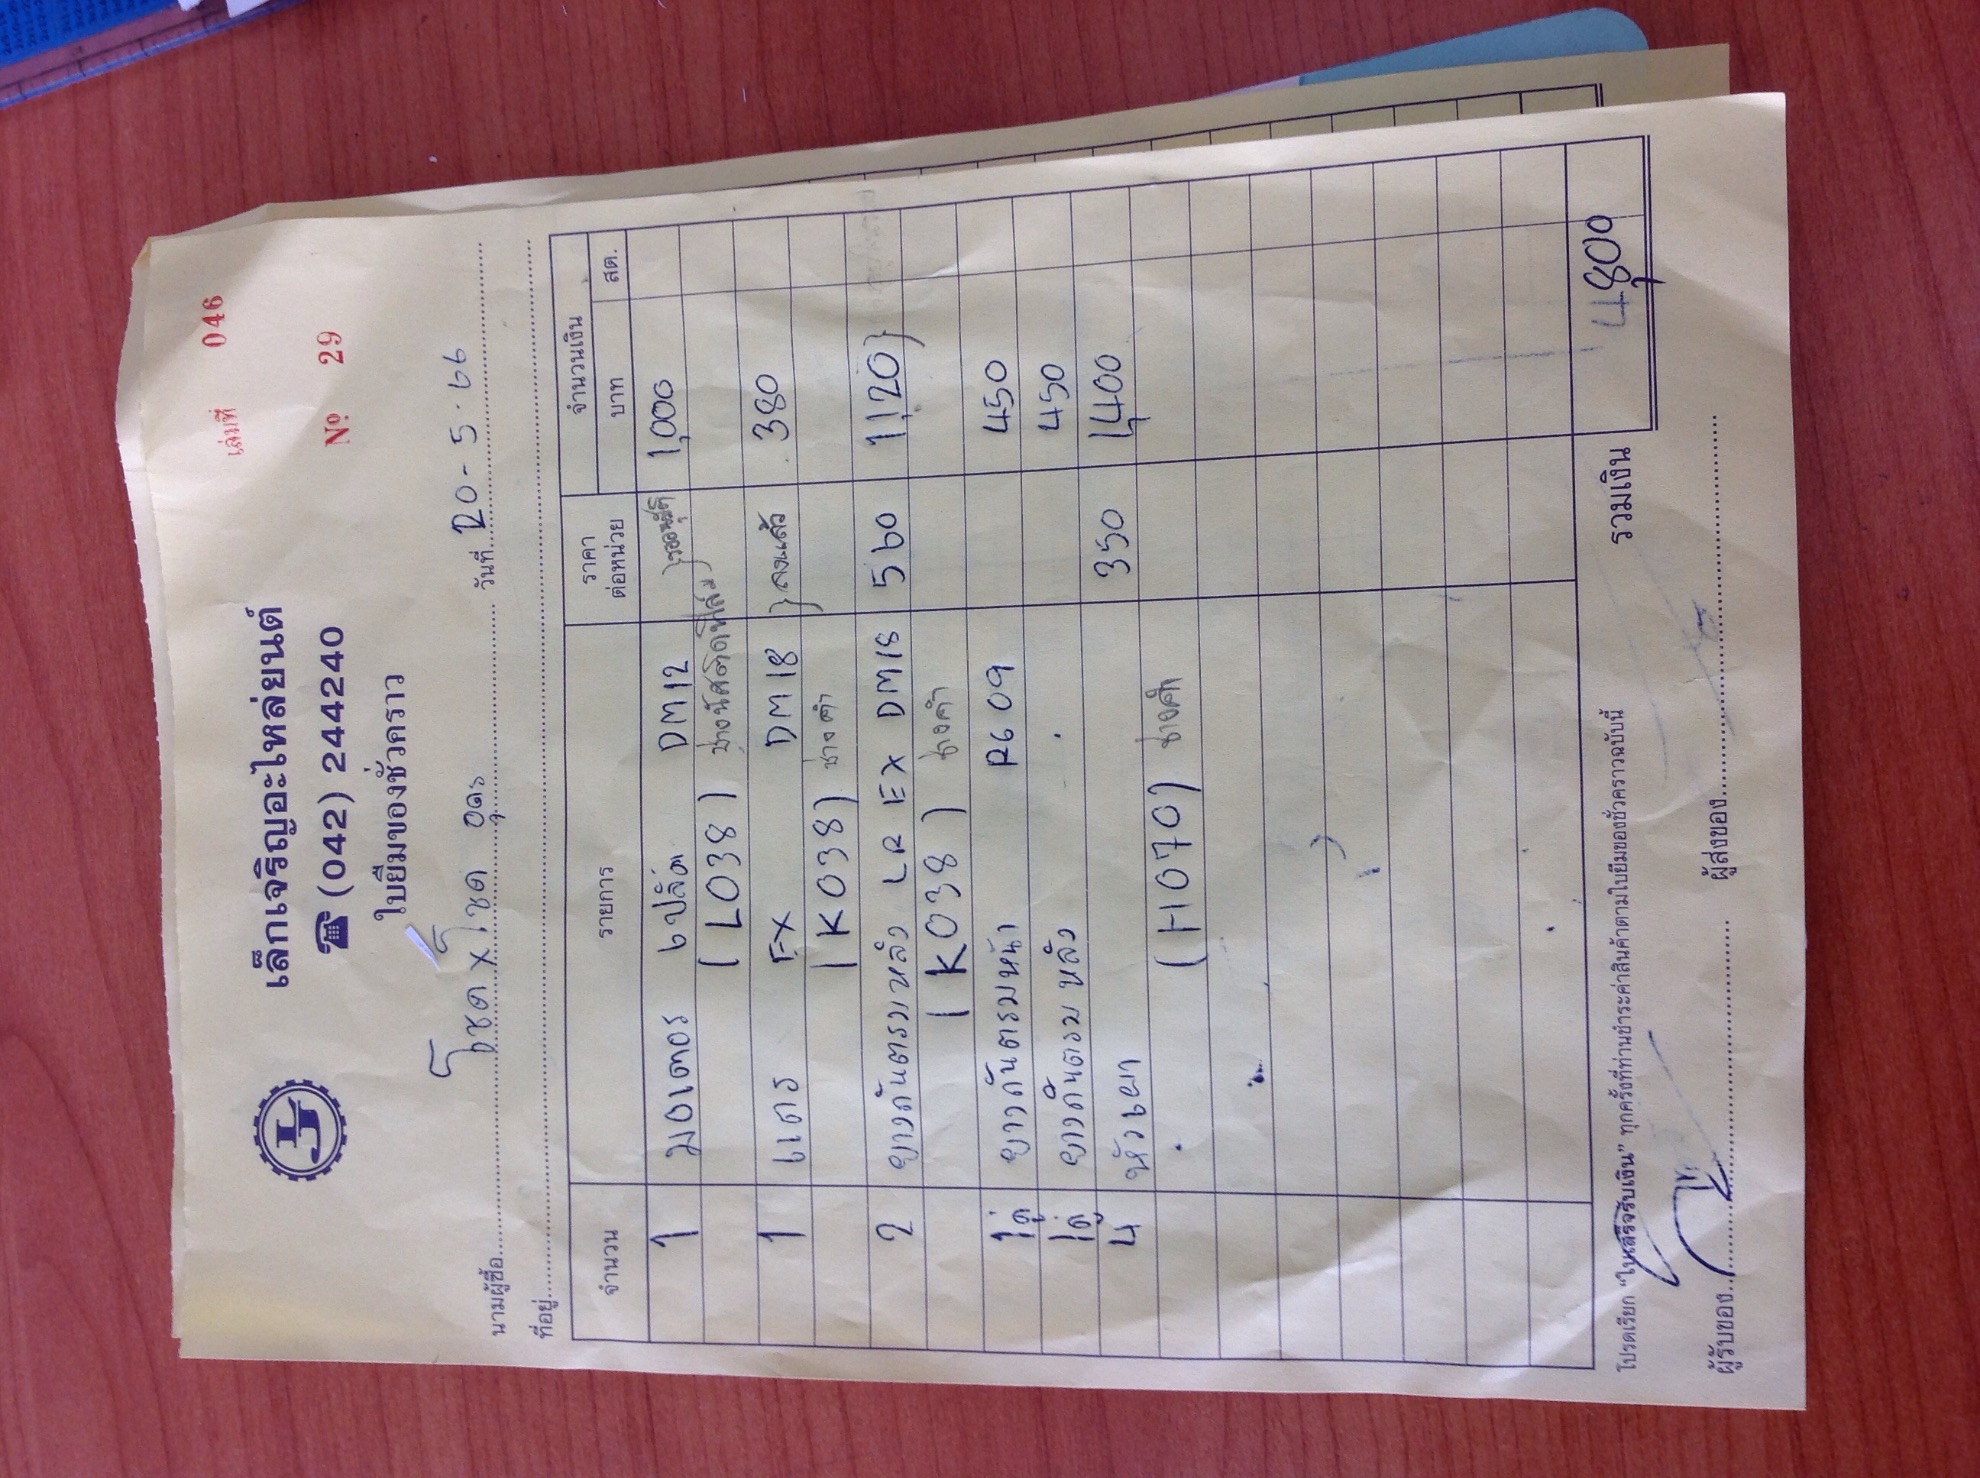 เล่มที่ 046
เล็กเจริญอะไหล่ยนต์
☎ (042) 244240
Nº 29
ใบยืมของชั่วคราว
นามผู้ซื้อ โชค x โชค อุดร วันที่ 20-5-66
ที่อยู่
จำนวน รายการ ราคาต่อหน่วย จำนวนเงิน
บาท สต.
1 มอเตอร์ เปลือก DM12 1,000
(L038)
1 แตร EX DM18 } ลงแล้ว 380
(K038) ช่างคำ
2 ยางกันตรมหลัง LR EX DM18 560 1,120
(K038) ช่างคำ
1คู่ ยางกันตรมหน้า R609 450
1คู่ ยางกันตรมหลัง 450
4 หัวเผา 350 1,400
(H070) ช่างคำ
รวมเงิน 4,800
โปรดเรียก "ใบเสร็จรับเงิน" ทุกครั้งที่ท่านชำระค่าสินค้าตามใบยืมของชั่วคราวฉบับนี้
ผู้รับของ ผู้ส่งของ